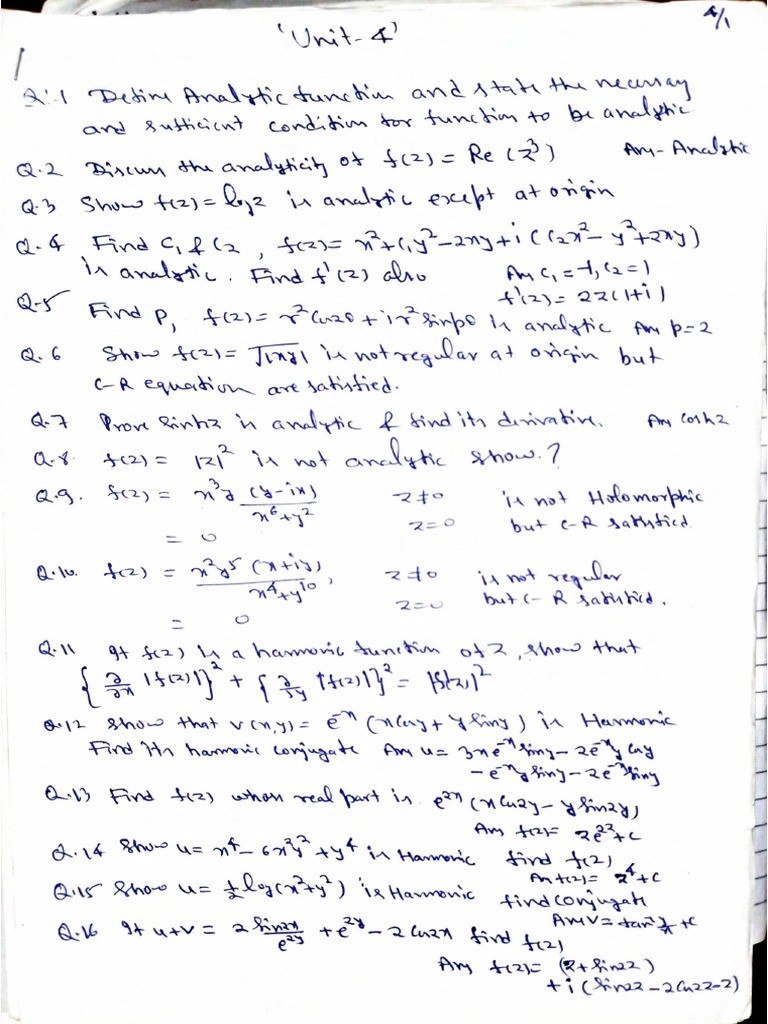 4/1
'Unit-4'
Q.1 Define Analytic function and state the necessary
and sufficient condition for function to be analytic
Q.2 Discuss the analyticity of f(z) = Re(z³) Ans- Analytic
Q.3 Show f(z) = log z is analytic except at origin
Q.4 Find C₁ & C₂, f(z) = x²+C₁y²-2xy+i(C₂x²-y²+2xy)
is analytic. Find f'(z) also Ans C₁=-1, C₂=1
f'(z)= 2z(1+i)
Q-5 Find P, f(z) = r²cos2θ+ir²sinpθ is analytic Ans p=2
Q.6 Show f(z) = √|xy| is not regular at origin but
C-R equation are satisfied.
Q.7 Prove sinhz is analytic & find its derivative. Ans coshz
Q.8. f(z) = |z|² is not analytic show.?
Q.9. f(z) = x³y(y-ix)/x⁶+y² z≠0 is not Holomorphic
= 0 z=0 but C-R satisfied
Q.10. f(z) = x²y⁵(x+iy)/x⁴+y¹⁰, z≠0 is not regular
= 0 z=0 but C-R satisfied.
Q.11 If f(z) is a harmonic function of z, show that
{∂/∂x |f(z)|}² + {∂/∂y |f(z)|}² = |f'(z)|²
Q.12 Show that v(x,y) = e⁻ˣ(xcosy+ysiny) is Harmonic
Find its harmonic conjugate Ans u= 3xe⁻ˣsiny-2e⁻ˣycosy
-e⁻ˣysiny-2e⁻ˣsiny
Q.13 Find f(z) whose real part is e²ˣ(xcos2y-ysin2y)
Ans f(z)= ze²ᶻ+c
Q.14 Show u= x⁴-6x²y²+y⁴ is Harmonic find f(z)
Ans f(z)= z⁴+c
Q.15 Show u= ½log(x²+y²) is Harmonic find conjugate
Ans v= tan⁻¹y/x+c
Q.16 If u+v = 2 sin2x/e²ʸ +e²ʸ-2cos2x find f(z)
Ans f(z)= (z+sin2z)
+i(sin2z-2cos2z-2)